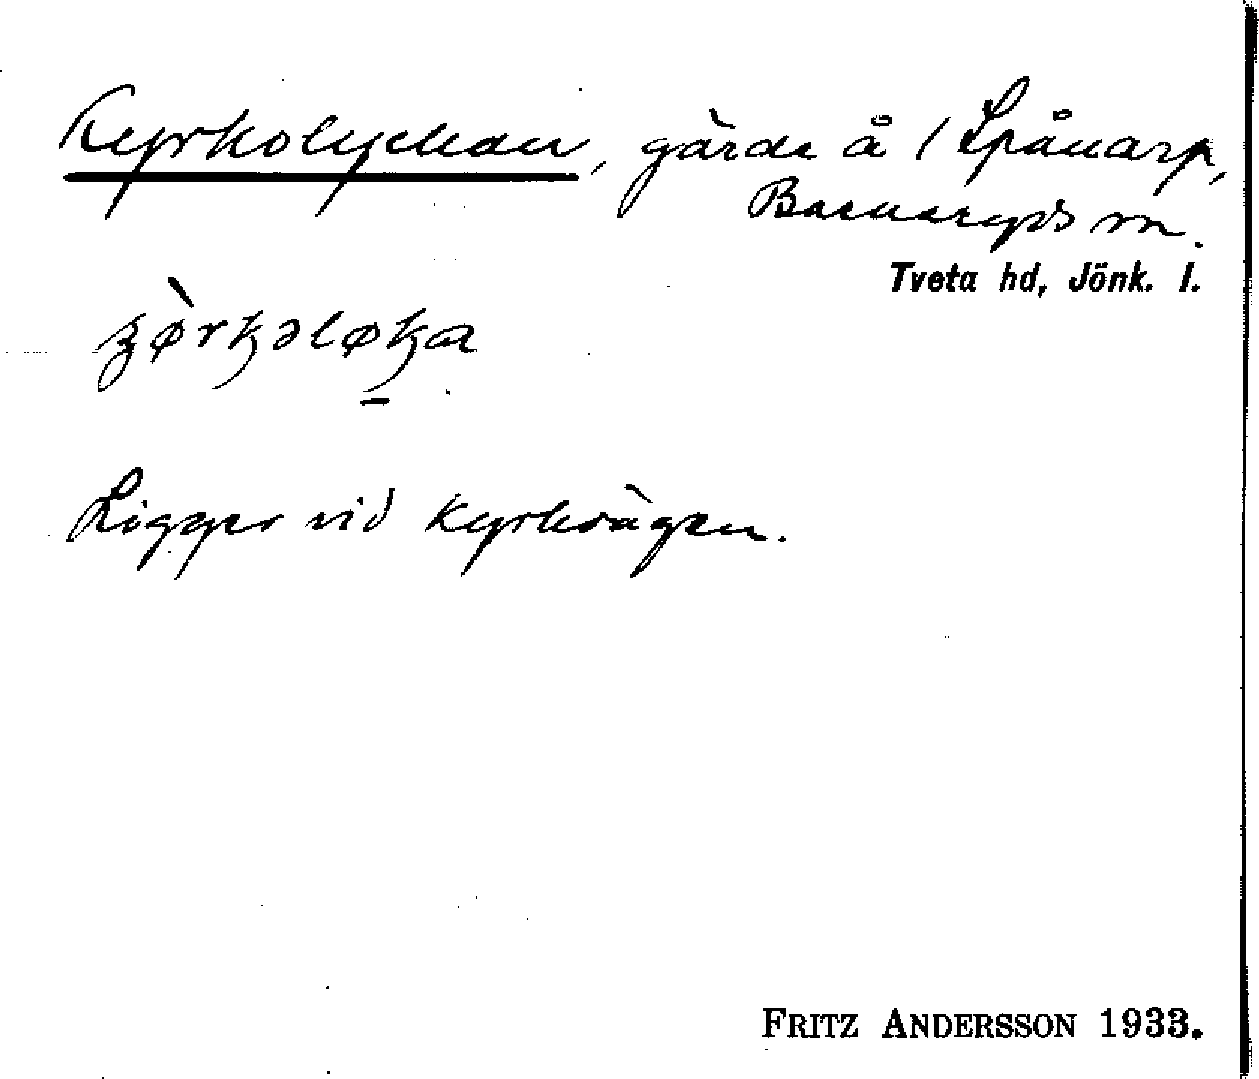 Kyrkolyckan, gärde å / Spånarp,
Barnarps sn.
Tveta hd, Jönk. l.
Ligger vid kyrkvägen.
FRITZ ANDERSSON 1933.